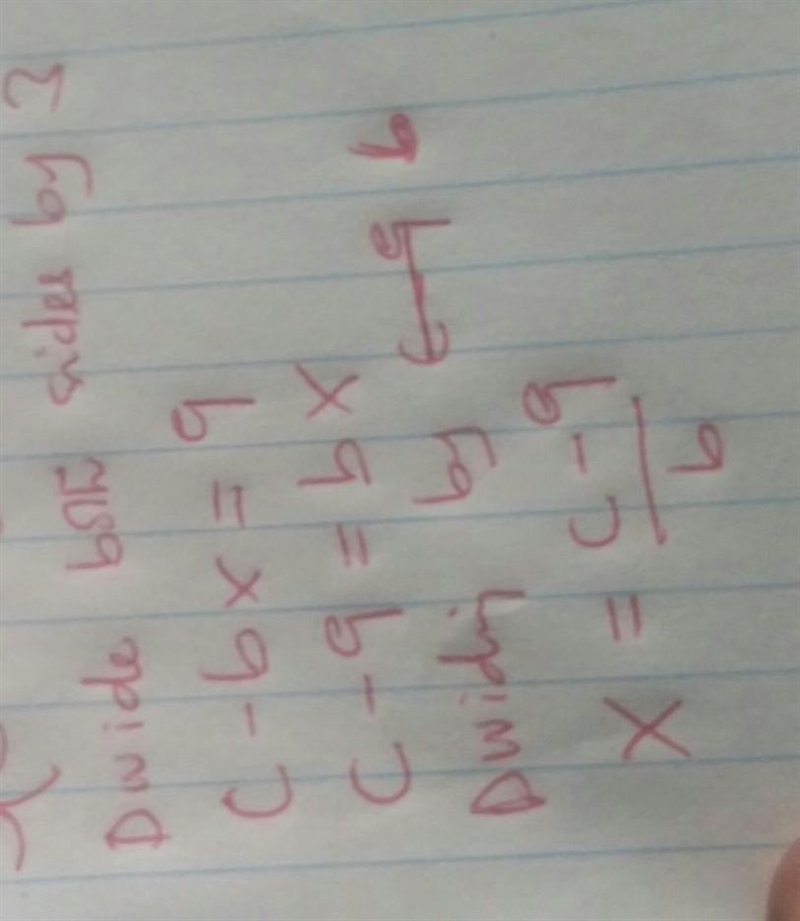 Divide both sides by 3
c - bx = 9
c - 9 = bx
Dividing by b
x = c - 9
b